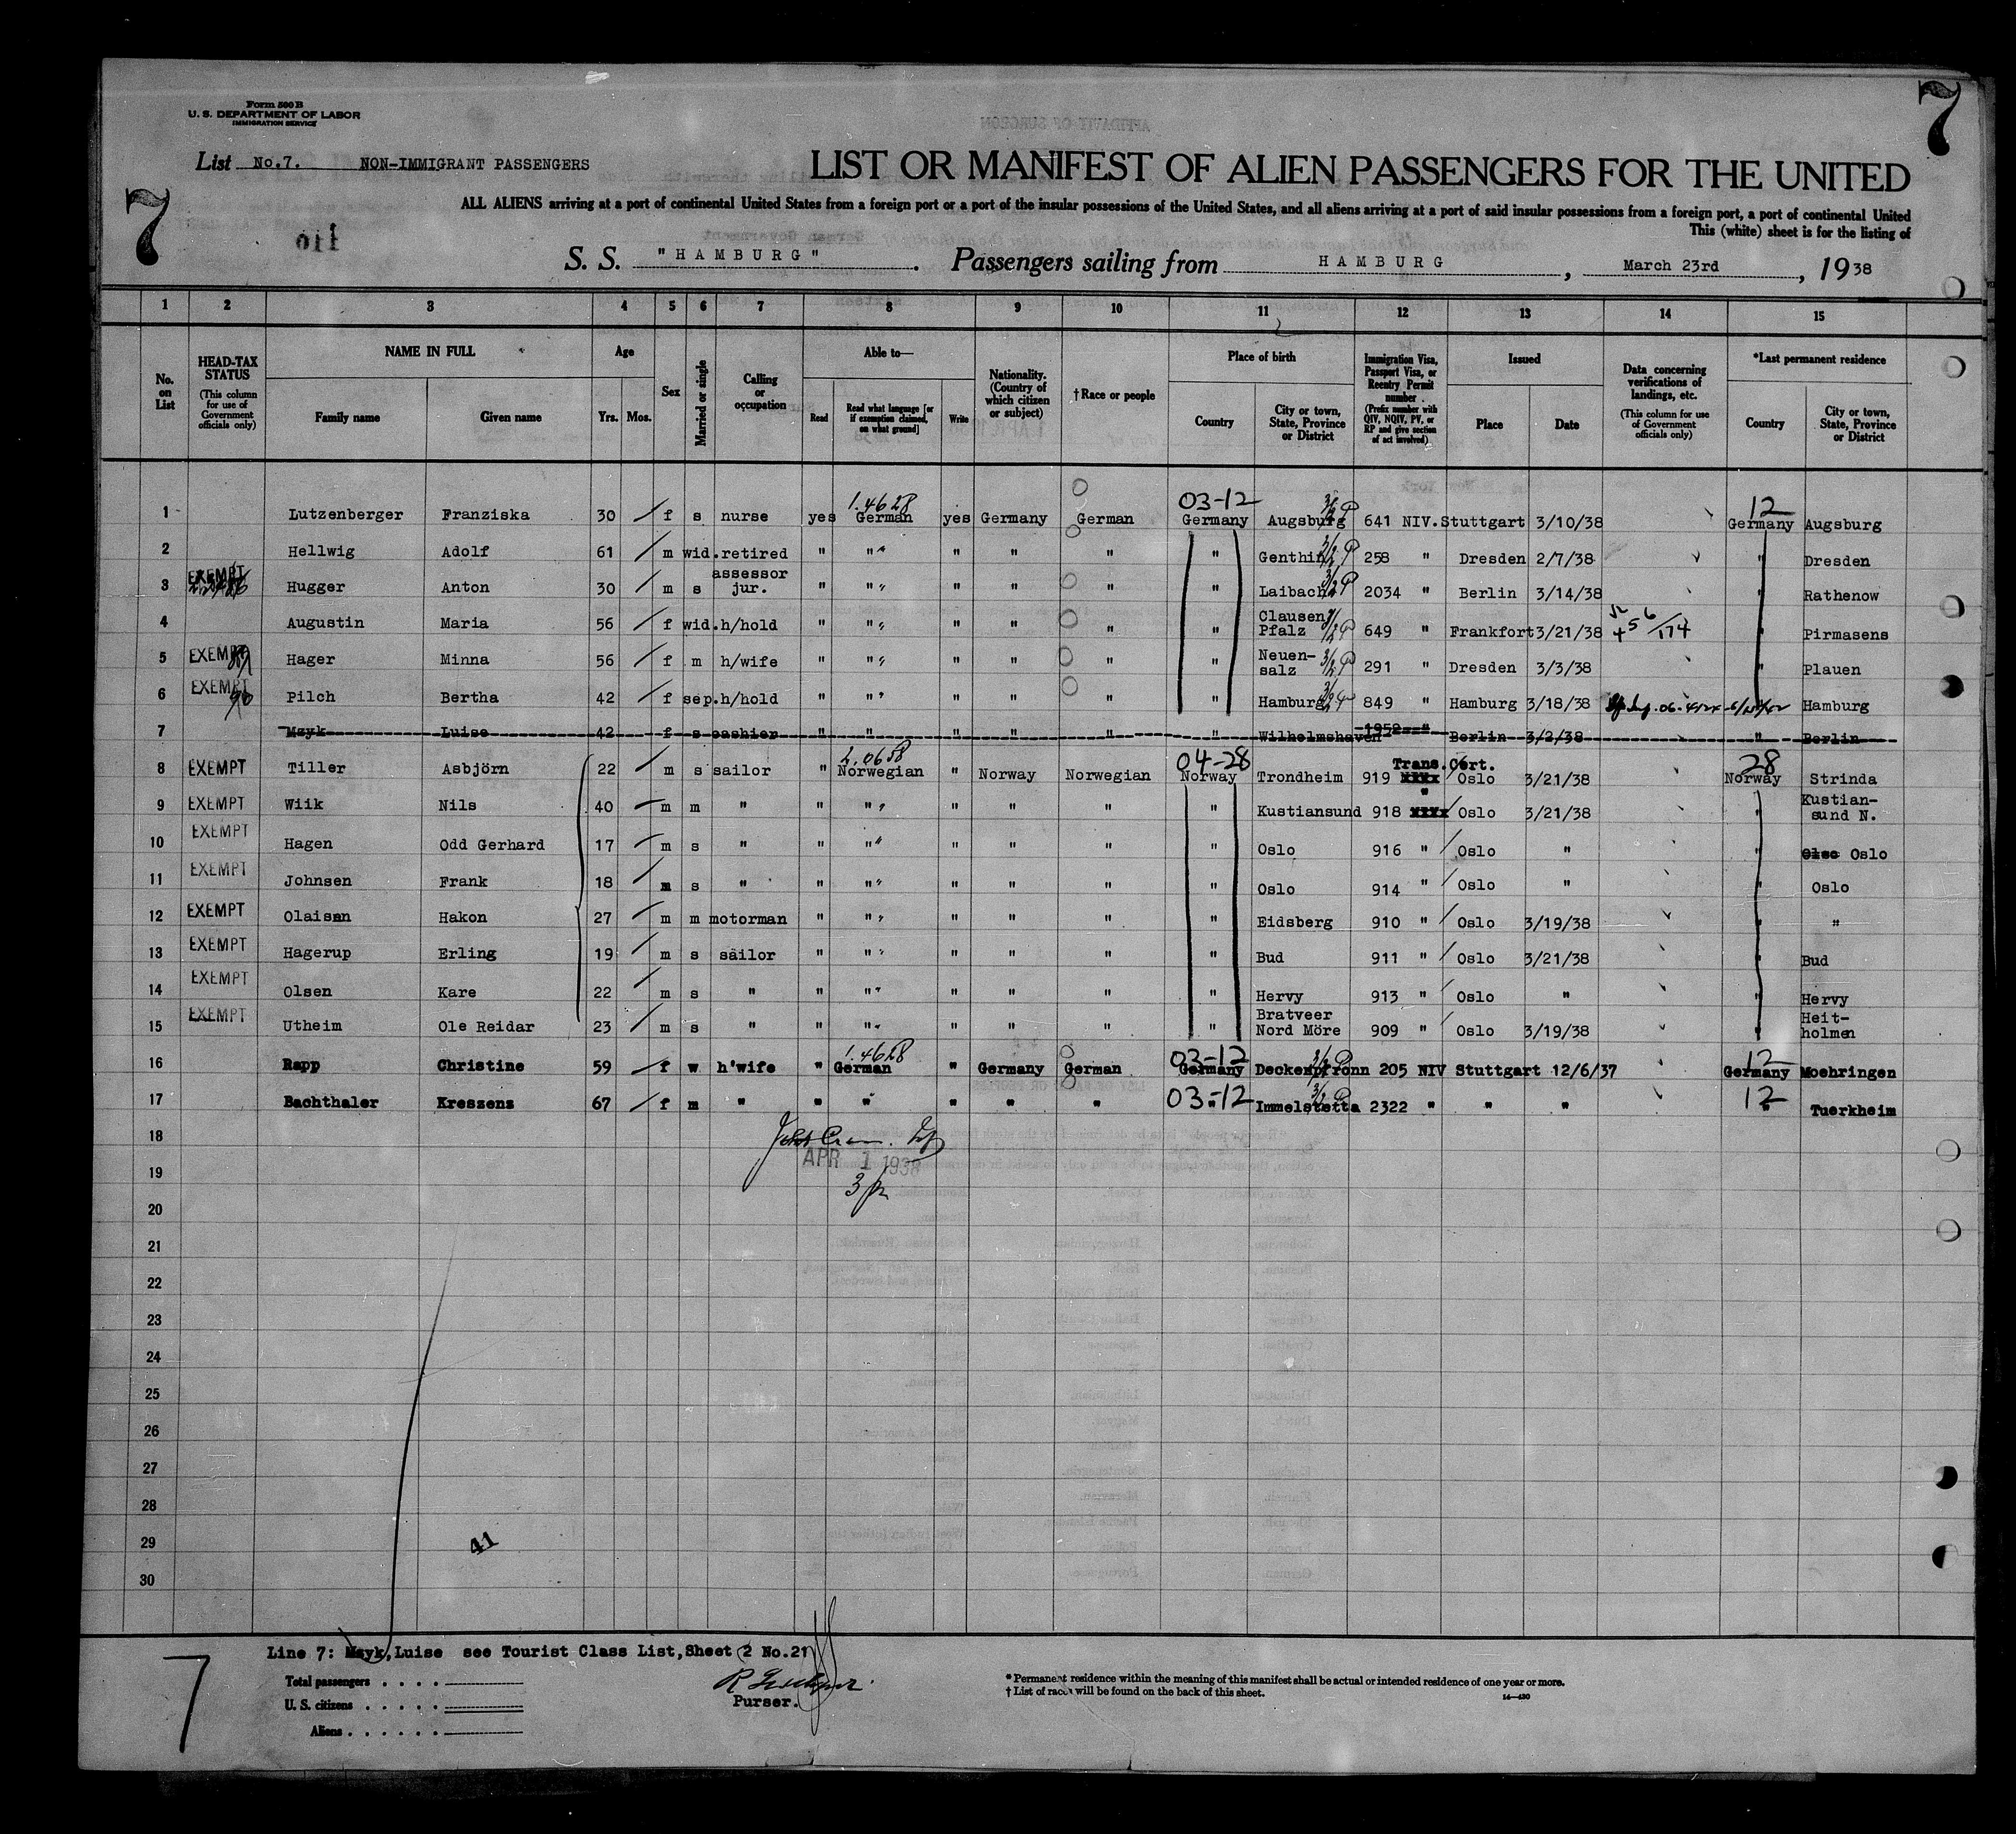 Form 500 B
U. S. DEPARTMENT OF LABOR
IMMIGRATION SERVICE
7
List No.7. NON-IMMIGRANT PASSENGERS
LIST OR MANIFEST OF ALIEN PASSENGERS FOR THE UNITED
7
ALL ALIENS arriving at a port of continental United States from a foreign port or a port of the insular possessions of the United States, and all aliens arriving at a port of said insular possessions from a foreign port, a port of continental United
This (white) sheet is for the listing of
S. S. "HAMBURG". Passengers sailing from HAMBURG, March 23rd, 1938
1 2 3 4 5 6 7 8 9 10 11 12 13 14 15
No. on List
HEAD-TAX STATUS (This column for use of Government officials only)
NAME IN FULL
Family name
Given name
Age
Yrs. Mos.
Sex
Married or single
Calling or occupation
Able to—
Read
Read what language [or if exemption claimed, on what ground]
Write
Nationality. (Country of which citizen or subject)
† Race or people
Place of birth
Country
City or town, State, Province or District
Immigration Visa, Passport Visa, or Reentry Permit number (Prefix number with QIV, NQIV, PV, or RP and give section of act involved)
Issued
Place
Date
Data concerning verifications of landings, etc. (This column for use of Government officials only)
*Last permanent residence
Country
City or town, State, Province or District
1.4628 03-12 12
1 Lutzenberger Franziska 30 f s nurse yes German yes Germany German Germany Augsburg 641 NIV. Stuttgart 3/10/38 Germany Augsburg
2 Hellwig Adolf 61 m wid. retired " " " " " " " Genthin 258 " Dresden 2/7/38 " Dresden
3 EXEMPT Hugger Anton 30 m s assessor jur. " " " " " " " Laibach 2034 " Berlin 3/14/38 " Rathenow
4 Augustin Maria 56 f wid. h/hold " " " " " " " Clausen Pfalz 649 " Frankfort 3/21/38 " Pirmasens
5 EXEMPT Hager Minna 56 f m h/wife " " " " " " " Neuen-salz 291 " Dresden 3/3/38 " Plauen
6 EXEMPT Pilch Bertha 42 f sep. h/hold " " " " " " " Hamburg 849 " Hamburg 3/18/38 " Hamburg
7 Mzyk Luise 42 f s cashier " " " " " " Wilhelmshaven 1952 " Berlin 3/2/38 " Berlin
2.0658 04-28 Trans.Cert. 28
8 EXEMPT Tiller Asbjörn 22 m s sailor " Norwegian " Norway Norwegian Norway Trondheim 919 xxxx Oslo 3/21/38 Norway Strinda
9 EXEMPT Wiik Nils 40 m m " " " " " " " " Kustiansund 918 xxxx " Oslo 3/21/38 " Kustian-sund N.
10 EXEMPT Hagen Odd Gerhard 17 m s " " " " " " " " Oslo 916 " Oslo " " Olso Oslo
11 EXEMPT Johnsen Frank 18 m s " " " " " " " " Oslo 914 " Oslo " " Oslo
12 EXEMPT Olaisen Hakon 27 m m motorman " " " " " " " Eidsberg 910 " Oslo 3/19/38 " "
13 EXEMPT Hagerup Erling 19 m s sailor " " " " " " " Bud 911 " Oslo 3/21/38 " Bud
14 EXEMPT Olsen Kare 22 m s " " " " " " " " Hervy 913 " Oslo " " Hervy
15 EXEMPT Utheim Ole Reidar 23 m s " " " " " " " " Bratveer Nord Möre 909 " Oslo 3/19/38 " Heit-holmen
1.4628 03-12 12
16 Rapp Christine 59 f w h'wife " German " Germany German Germany Deckenpfronn 205 NIV Stuttgart 12/6/37 Germany Moehringen
17 Bachthaler Kreszens 67 f m " " " " " " 03-12 Immelstetta 2322 " " " 12 Tuerkheim
18
APR 1 1938
19
20
21
22
23
24
25
26
27
28
29
41
30
Line 7: Mzyk, Luise see Tourist Class List, Sheet 2 No.21
7
Total passengers
U. S. citizens
Aliens
Purser.
* Permanent residence within the meaning of this manifest shall be actual or intended residence of one year or more.
† List of races will be found on the back of this sheet.
14—430